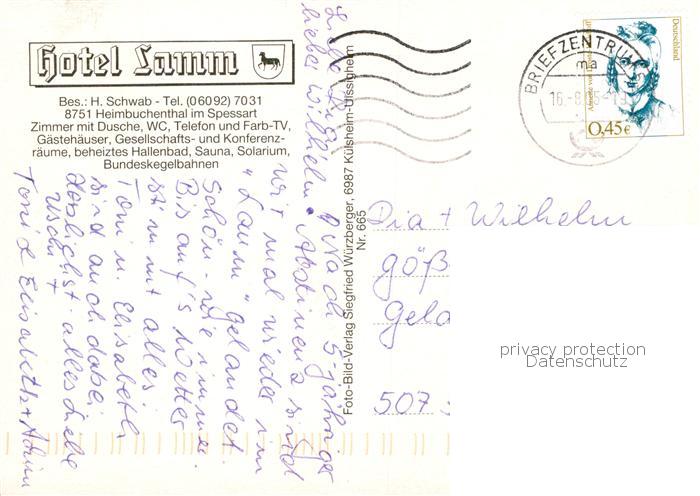 Hotel Lamm
Bes.: H. Schwab - Tel. (06092) 7031
8751 Heimbuchenthal im Spessart
Zimmer mit Dusche, WC, Telefon und Farb-TV,
Gästehäuser, Gesellschafts- und Konferenz-
räume, beheiztes Hallenbad, Sauna, Solarium,
Bundeskegelbahnen
Liebe
lieber Wilhelm!
Nach 5-jähriger
Abstinenz sind
wir mal wieder im
"Lamm" gelandet.
Schön - wie immer.
Bis auf's Wetter
stimmt alles.
Toni u. Elisabeth
sind auch dabei.
Herzlichst alles Liebe
Uschi +
Toni & Elisabeth +
Foto-Bild-Verlag Siegfried Würzberger, 6987 Külsheim-Uissigheim
Nr. 665
BRIEFZENTRUM
ma
16.-8.
Deutschland
0,45€
Pia + Wilhelm
göß
Gela
507
privacy protection
Datenschutz